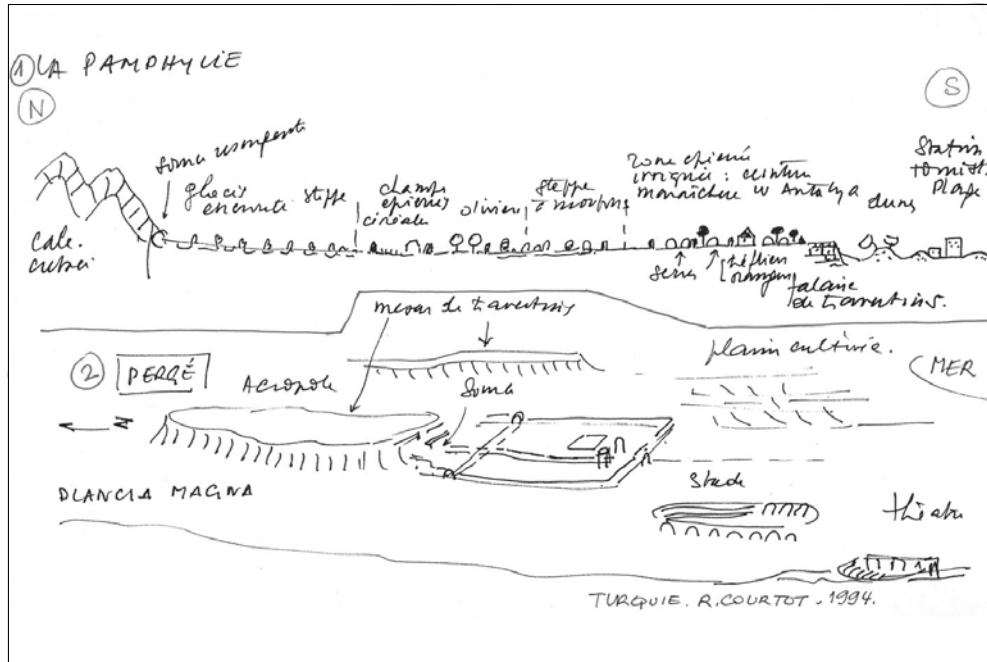 ① LA PAMPHYLIE
N
S
source
glacis
encrouté
steppe
champs
épierrés
céréales
oliviers
steppe
zone épierrée
irriguée : ceinture
maraichère w Antalya
dunes
Station
tourist.
Plage
calc.
serres
orangers
falaise
de travertins.
mesas de travertins
② PERGÉ
Acropole
source
plaine cultivée.
MER
N
PLANCIA MAGNA
Stade
théatre
TURQUIE. R. COURTOT. 1994.